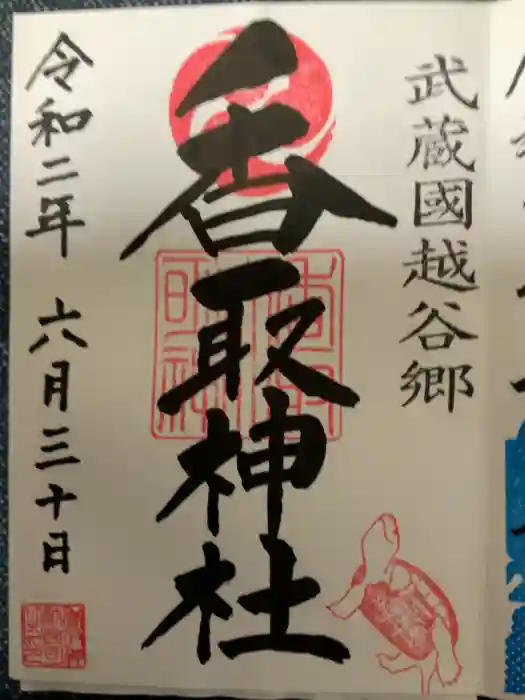 武蔵國越谷郷
香取神社
令和二年 六月三十日